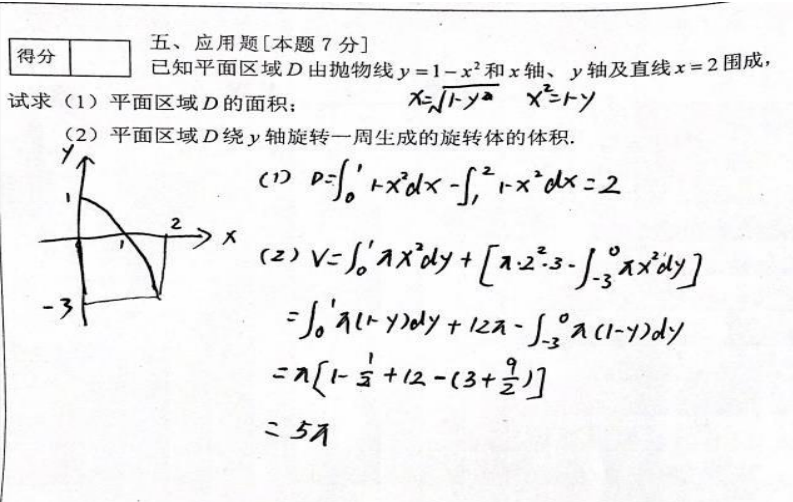 得分
五、应用题[本题 7 分]
已知平面区域 D 由抛物线 y = 1 - x² 和 x 轴、 y 轴及直线 x = 2 围成,
试求（1）平面区域 D 的面积;
x=√1-y x²=1-y
（2）平面区域 D 绕 y 轴旋转一周生成的旋转体的体积.
y
1
1
2
x
-3
(1) D=∫₀¹ 1-x²dx - ∫₁² 1-x²dx = 2
(2) V=∫₀¹ πx²dy + [π·2²·3 - ∫₋₃⁰ πx²dy]
=∫₀¹ π(1-y)dy + 12π - ∫₋₃⁰ π(1-y)dy
=π[1-1/2+12-(3+9/2)]
= 5π